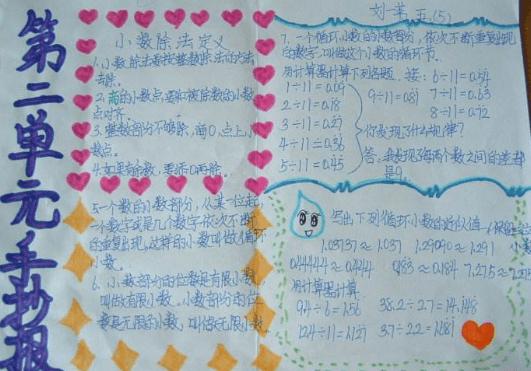 第二单元手抄报
小数除法定义
1.小数除法要按整数除法的方法
去除。
2.商的小数点要和被除数的小数
点对齐。
3.整数部分不够除,商0,点上小
数点。
4.如果有余数,要添0再除。
5.一个数的小数部分,从某一位起,
一个数字或是几个数字依次不断
的重复出现,这样的小数叫做循环
小数。
6.小数部分的位数是有限小数,
叫做有限小数。小数部分的位
数是无限的小数,叫做无限小数。
五(5)
7.一个循环小数的小数部分,依次不断重复出现
的数字,叫做这个小数的循环节。
用计算器计算下列各题。接:6÷11=0.54
1÷11=0.09 9÷11=0.81 7÷11=0.63
2÷11=0.18 8÷11=0.72
3÷11=0.27 你发现了什么规律?
4÷11=0.36 答:我发现了每两个数之间的差都
5÷11=0.45 是9.
写出下列循环小数的近似值
1.03737≈1.037 1.29090≈1.291
0.44444≈0.444 0.183≈0.184
用计算器计算
9.4÷6=1.56 38.2÷2.7=14.148
12.4÷11=1.127 3.7÷2.2=1.681